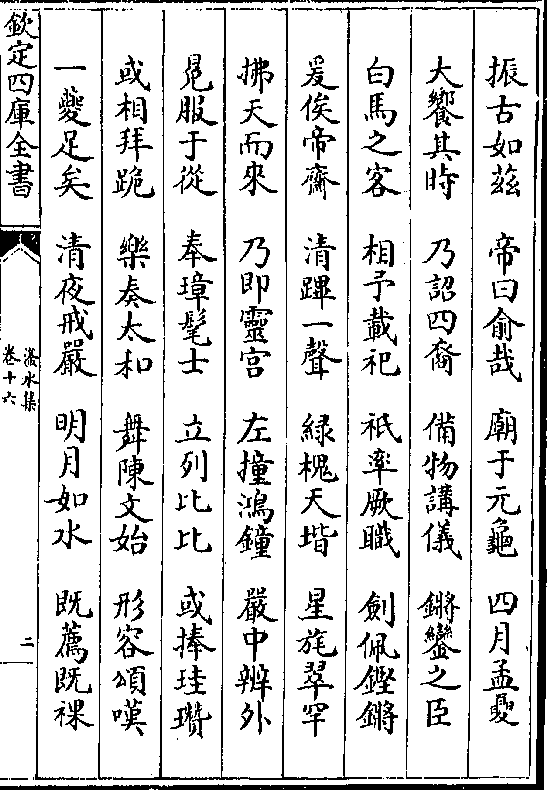 振古如茲　帝曰俞哉　廟于元龜　四月孟夏
大饗其時　乃詔四裔　備物講儀　鏘鑾之臣
白馬之客　相予載祀　祇率厥職　劍佩鏗鏘
爰俟帝齋　清蹕一聲　綠槐天堦　星旄翠罕
拂天而來　乃即靈宫　左撞鴻鐘　嚴中辨外
冕服于從　奉璋髦士　立列比比　或捧珪瓚
或相拜跪　樂奏太和　舞陳文始　形容頌嘆
一夔足矣　清夜戒嚴　明月如水　既薦既祼
欽定四庫全書
滏水集
卷十六
二